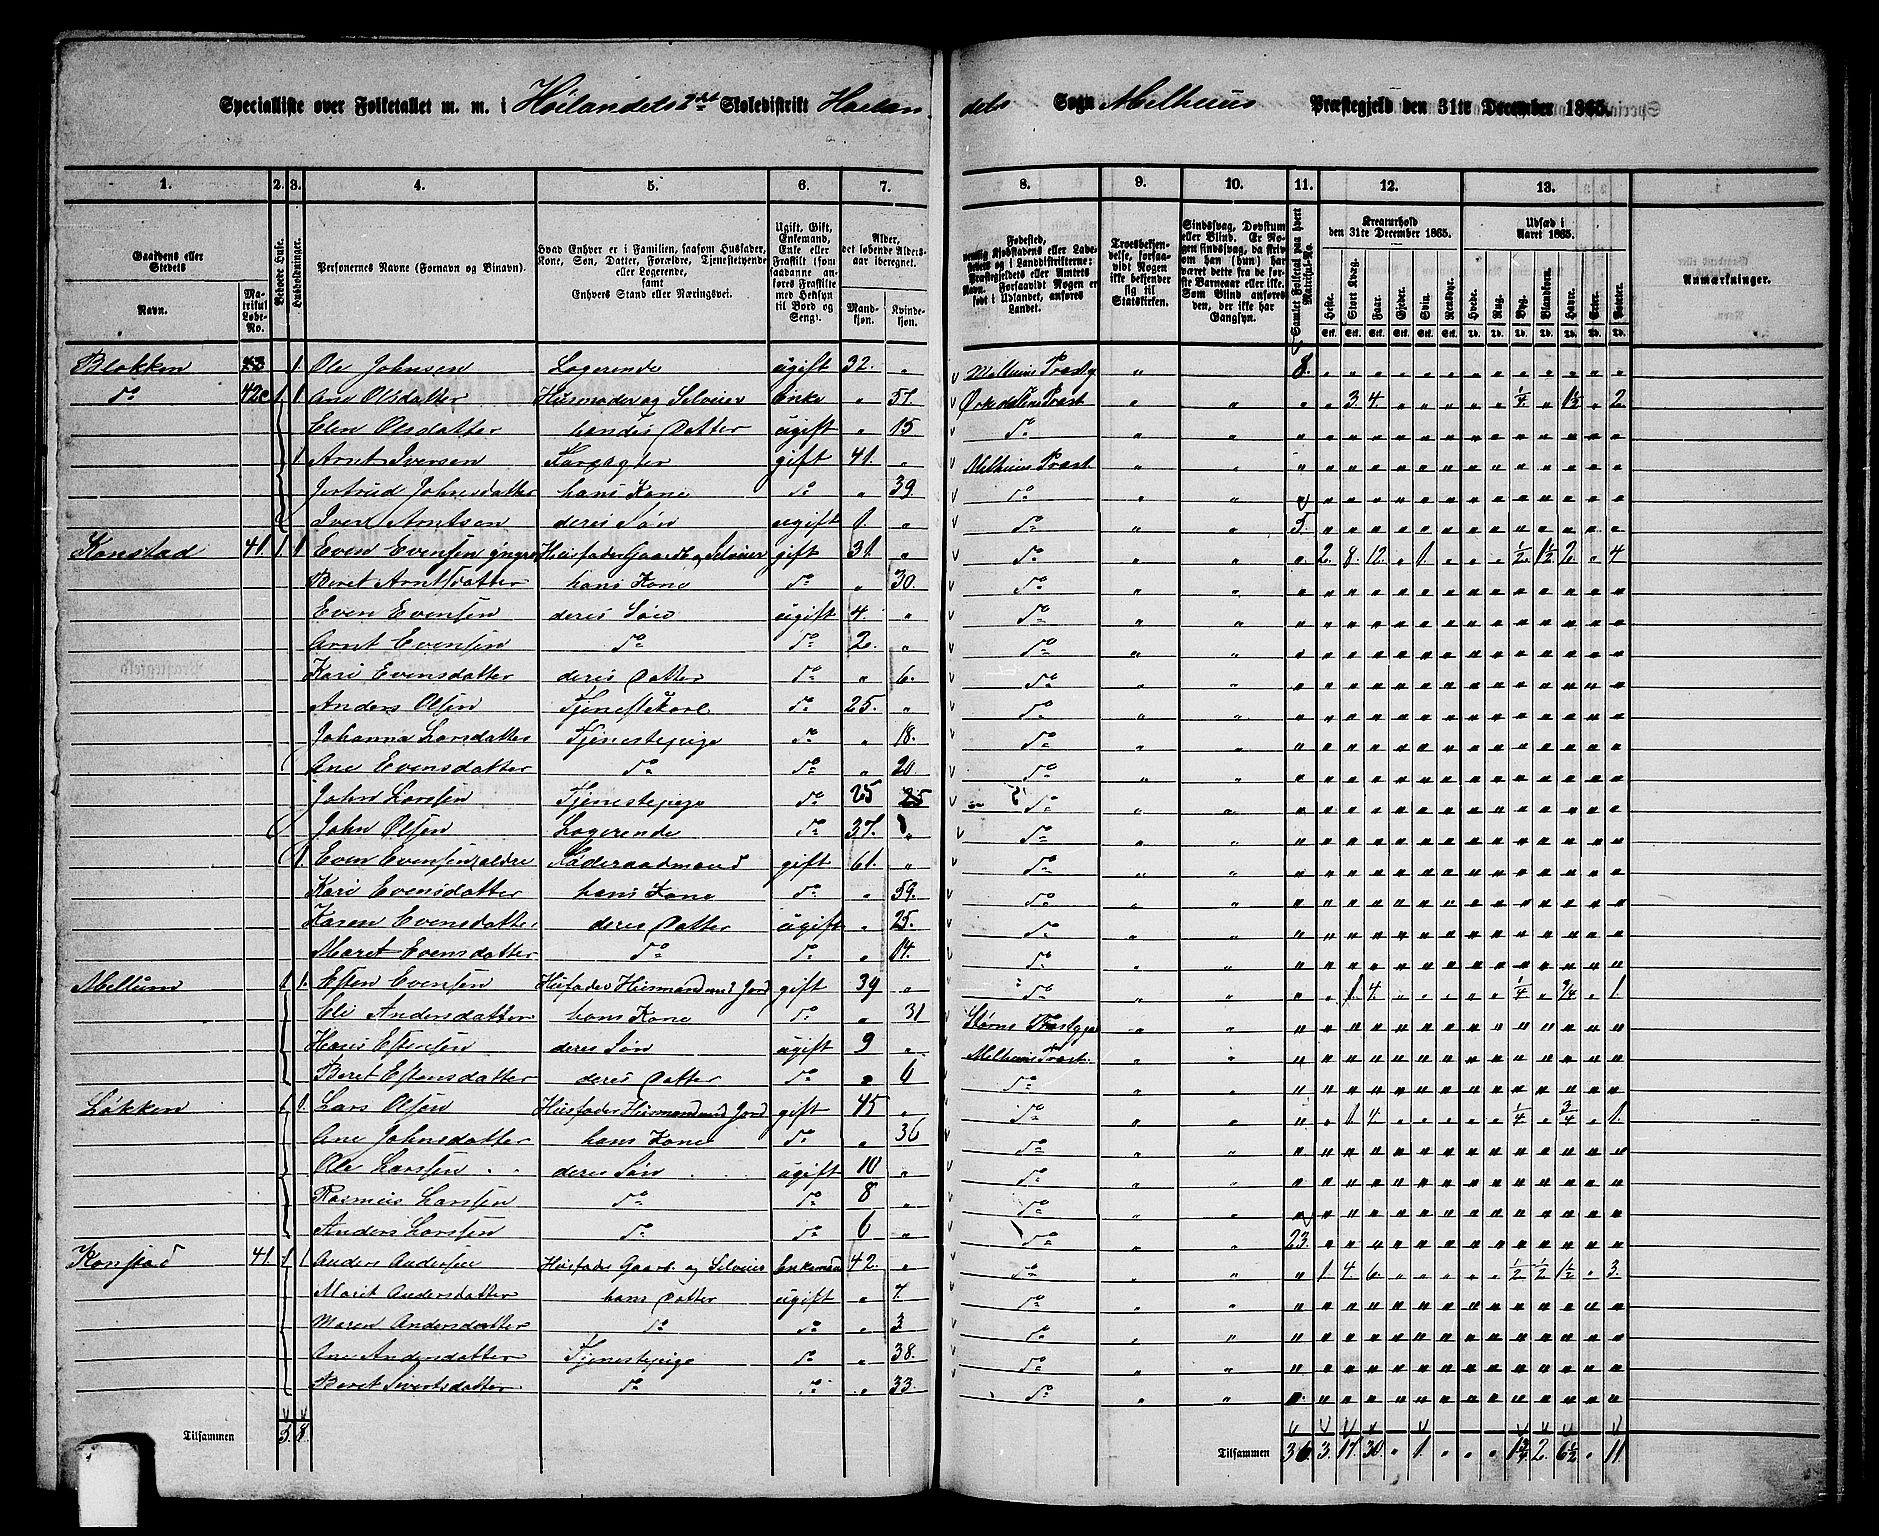 Specialliste over Folketallet m. m. i Høilandets 2det Skoledistrikt Haltan dets Sogn Melhuus Præstegjeld den 31te December 1865.
1. 2. 3. 4. 5. 6. 7. 8. 9. 10. 11. 12. 13.
Gaardens eller Stedets Navn. Matrikul Løbe-No. Beboede Huse. Husholdninger. Personernes Navne (Fornavn og Binavn). Hvad Enhver er i Familien, saasom Husfader, Kone, Søn, Datter, Forældre, Tjenestetyende eller Logerende, samt Enhvers Stand eller Næringsvei. Ugift, Gift, Enkemand, Enke eller Fraskilt (som saadanne anføres Fraskilte med Hensyn til Bord og Seng). Alder, det løbende Aldersaar iberegnet. Mandkjøn. Kvindekjøn.
Fødested, Troesbekjendelse, forsaavidt Nogen ikke bekjender sig til Statskirken. Sindssvag, Døvstum eller Blind. Samlet Folketal paa hvert Matrikul-No. Kreaturhold den 31te December 1865. Udsæd i Aaret 1865. Anmærkninger.
Heste. Stort Kvæg. Faar. Gjeder. Sviin. Rensdyr. Hvede. Rug. Byg. Blandkorn. Havre. Erter. Poteter.
Blokken 43 1 Ole Johnsen Logerende ugift 32. " Melhuus Præstg " 8.
do 42c 1 1 Ane Olsdatter Husmoder og Selveier Enke " 57. Ørkedalens Præst " " " " 3. 4. " " " " " 1/4 " 1 1/2 " 2
Elen Olsdatter hendes Datter ugift " 15 do
1 Arnt Iversen Forpagter gift 41. " Melhuus Præst
Jertrud Johnsdatter hans Kone do " 39. do
Iver Arntsen deres Søn ugift 1. " do 5.
Konstad 41. 1 1 Even Evensen yngre Husfader Gaardb og Selveier gift 31. " do 2. 8. 12. " 1. " " " 1/2 1 1/2 2. " 4
Beret Arntsdatter hans Kone do " 30. do
Even Evensen deres Søn ugift 4. " do
Arnt Evensen do do 2. " do
Kari Evensdatter deres Datter do " 6. do
Anders Olsen Tjenestekarl do 25. " do
Johanna Larsdatter Tjenestepige do " 18. do
Ane Evensdatter do do " 20. do
John Larsen Tjenestepige do 25 25 do
John Olsen Logerende do 37. " do
1 Even Evensen ældre Føderaadmand gift 61. " do
Kari Evensdatter hans Kone do " 59. do
Karen Evensdatter deres Datter ugift " 25. do
Maret Evensdatter do do " 14. do
Mellum 1 1. Esten Evensen Husfader Husmand med Jord gift 39 " do " 1. 4. " " " " " 1/4 " 3/4 " 1.
Eli Andersdatter hans Kone do " 31 Størens Præstgj
Hans Estensen deres Søn ugift 9 " Melhuus Præst.
Beret Estensdatter deres Datter do " 6 do
Løkken 1 1. Lars Olsen Husfader Husmand med Jord gift 45 " do " 1. 4 " " " " " 1/4 " 3/4 " 1.
Ane Johnsdatter hans Kone do " 36 do
Ole Larsen deres Søn ugift 10 " do
Rasmus Larsen do do 8 " do
Anders Larsen do do 6 " do 23.
Konstad 41. 1 1 Anders Andersen Husfader Gaarb. og Selveier Enkemand 42. " do " 1. 4. 6. " " " " " 1/2 1/2 1 1/2 " 3.
Marit Andersdatter hans Datter ugift " 7. do
Maren Andersdatter do do " 3 do
Ane Andersdatter Tjenestepige do " 38. do
Beret Sivertsdatter do do " 33. do
Tilsammen 5. 8.
Tilsammen 36 3. 17. 30. " 1. " " " 1 3/4 2. 6 1/2 " 11